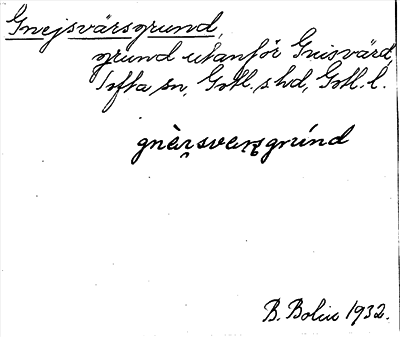 Gnejsvärsgrund,
grund utanför Gnisvärd,
Tofta sn, Gotl. s hd, Gotl. l.
B. Bolin 1932.